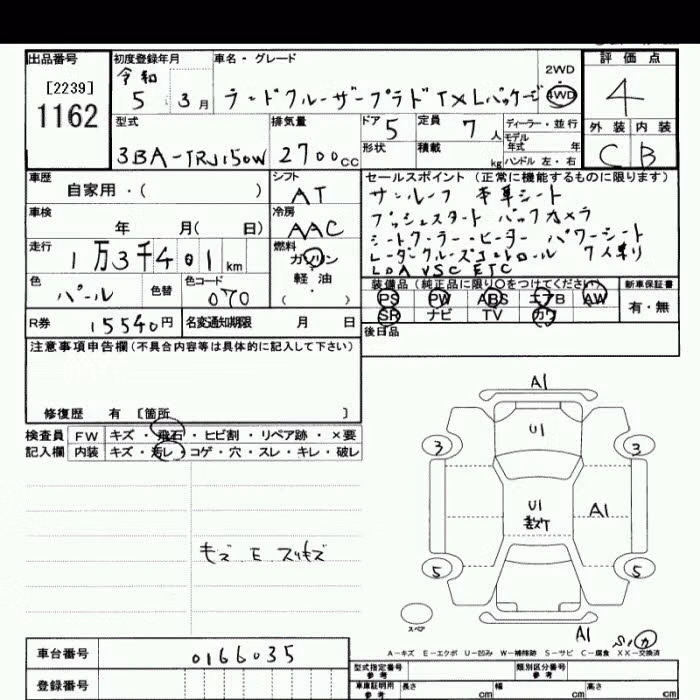 出品番号 初度登録年月 車名・グレード 2WD 評価点
[2239] 令和
1162 5 3月 ランドクルーザープラド TXLパッケージ 4WD 4
型式 排気量 ドア 5 定員 7人 ディーラー・並行 外装 内装
モデル年式 年
3BA-TRJ150W 2700cc 形状 積載 kg ハンドル 左・右 C B
車歴 シフト セールスポイント(正常に機能するものに限ります)
自家用・( ) AT サンルーフ 本革シート
車検 冷房 プッシュスタート バックカメラ
年 月( 日) AAC シートクーラー・ヒーター パワーシート
走行 燃料 レーダークルーズコントロール 7人乗り
1万3千4 0 1 km ガソリン LDA VSC ETC
色 色替 色コード 軽油 装備品(純正品に限り○をつけてください) 新車保証書
パール 070 ( ) PS PW ABS エアB AW 有・無
R券 15540円 名変通知期限 月 日 SR ナビ TV カワ
注意事項申告欄(不具合内容等は具体的に記入して下さい) 後日品
修復歴 有 [箇所 ]
検査員 FW キズ・飛石・ヒビ割・リペア跡・×要
記入欄 内装 キズ・汚レ・コゲ・穴・スレ・キレ・破レ
A1
U1
3 3
U1
A1
キズ E スリキズ
5 5
スペア
A1
A-キズ E-エクボ U-凹み W-補修跡 S-サビ C-腐食 XX-交換済
車台番号 0166035
型式指定番号 参考 類別区分番号 参考
登録番号 車庫証明用 参考 長さ cm 幅 cm 高さ cm